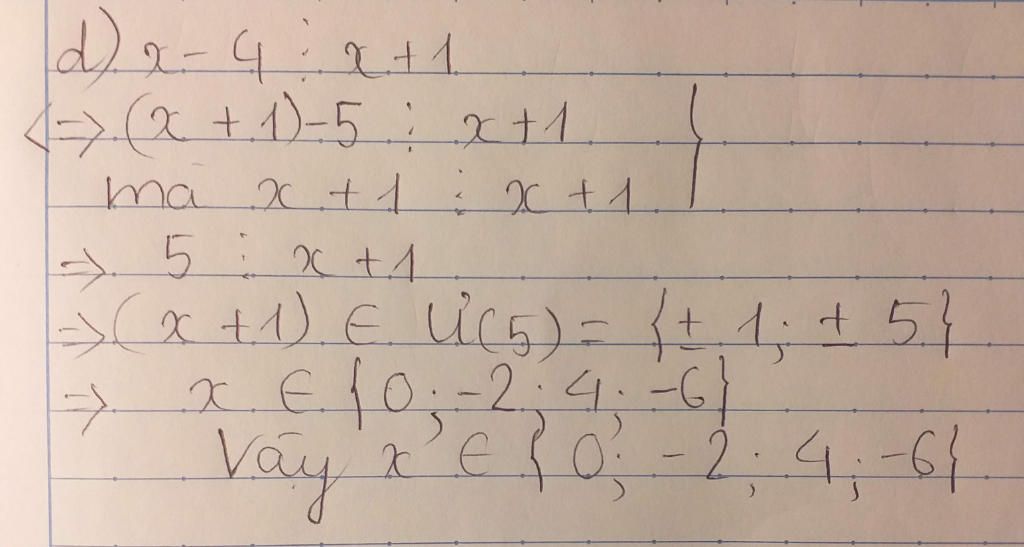 d) x - 4 ⋮ x + 1
<=> (x + 1) - 5 ⋮ x + 1 }
mà x + 1 ⋮ x + 1
=> 5 ⋮ x + 1
=> (x + 1) ∈ Ư(5) = {± 1; ± 5}
=> x ∈ {0; -2; 4; -6}
Vậy x ∈ {0; -2; 4; -6}